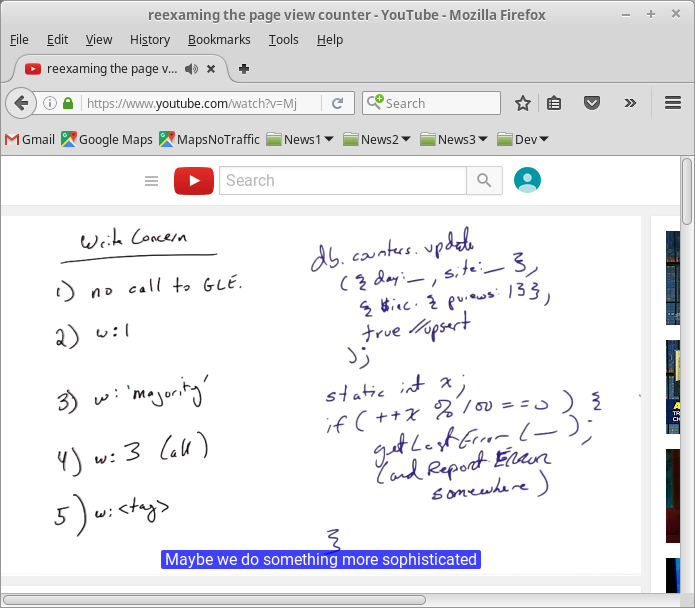 reexaming the page view counter - YouTube - Mozilla Firefox
File Edit View History Bookmarks Tools Help
reexaming the page v...
https://www.youtube.com/watch?v=Mj
Search
Gmail Google Maps MapsNoTraffic News1 News2 News3 Dev
Search
Write Concern
1) no call to GLE.
2) w:1
3) w: 'majority'
4) w: 3 (all)
5) w: <tag>
db.counters.update
( { day:_ , site:_ },
{ $inc: { pviews: 1 } },
true //upsert
);
static int x;
if ( ++x % 100 == 0 ) {
getLastError (_);
(and Report ERROR
somewhere)
}
Maybe we do something more sophisticated